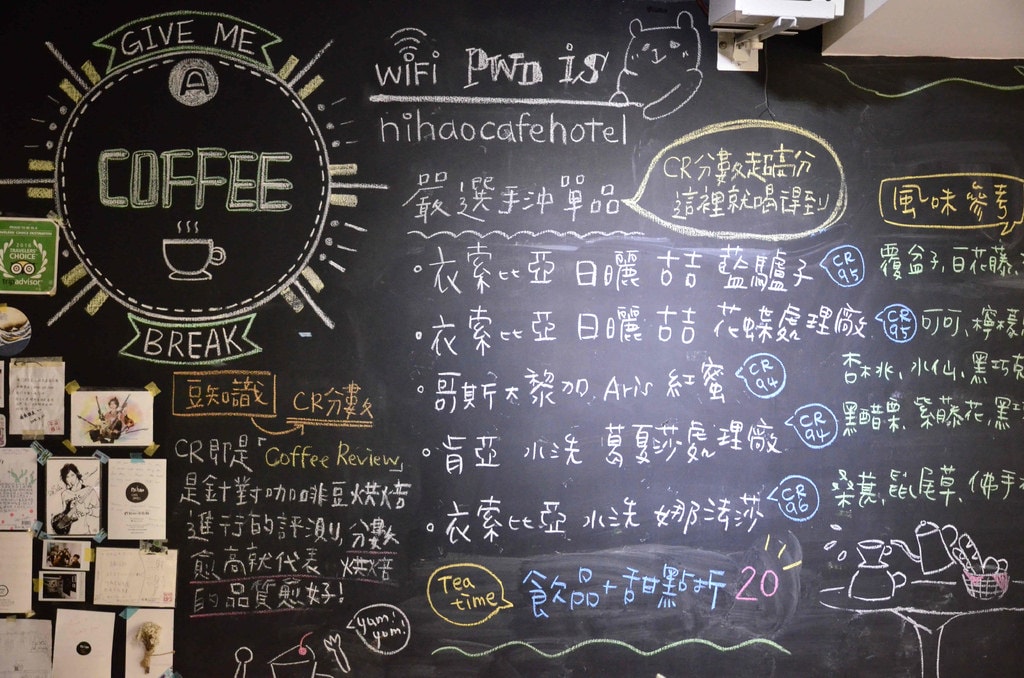 GIVE ME
COFFEE
BREAK
WiFi PWD is
nihaocafehotel
嚴選手沖單品
CR分數超高分
這裡就喝得到
風味參考
•衣索比亞 日曬 古吉 藍驢子 CR 95 覆盆子,百花藤,
•衣索比亞 日曬 古吉 花蝶處理廠 CR 95 可可、檸檬
•哥斯大黎加 Aris 紅蜜 CR 94 杏桃、水仙、黑巧克
•肯亞 水洗 葛夏莎處理廠 CR 94 黑醋栗,紫藤花,黑巧
•衣索比亞 水洗 娜法莎 CR 96 鼠尾草、佛手
Tea time 飲品+甜點折20
豆知識
CR分數
CR即是「Coffee Review」
是針對咖啡豆烘焙
進行的評測,分數
愈高就代表 烘焙
的品質愈好!
yum! yum!
2018
TRAVELERS'
CHOICE
tripadvisor